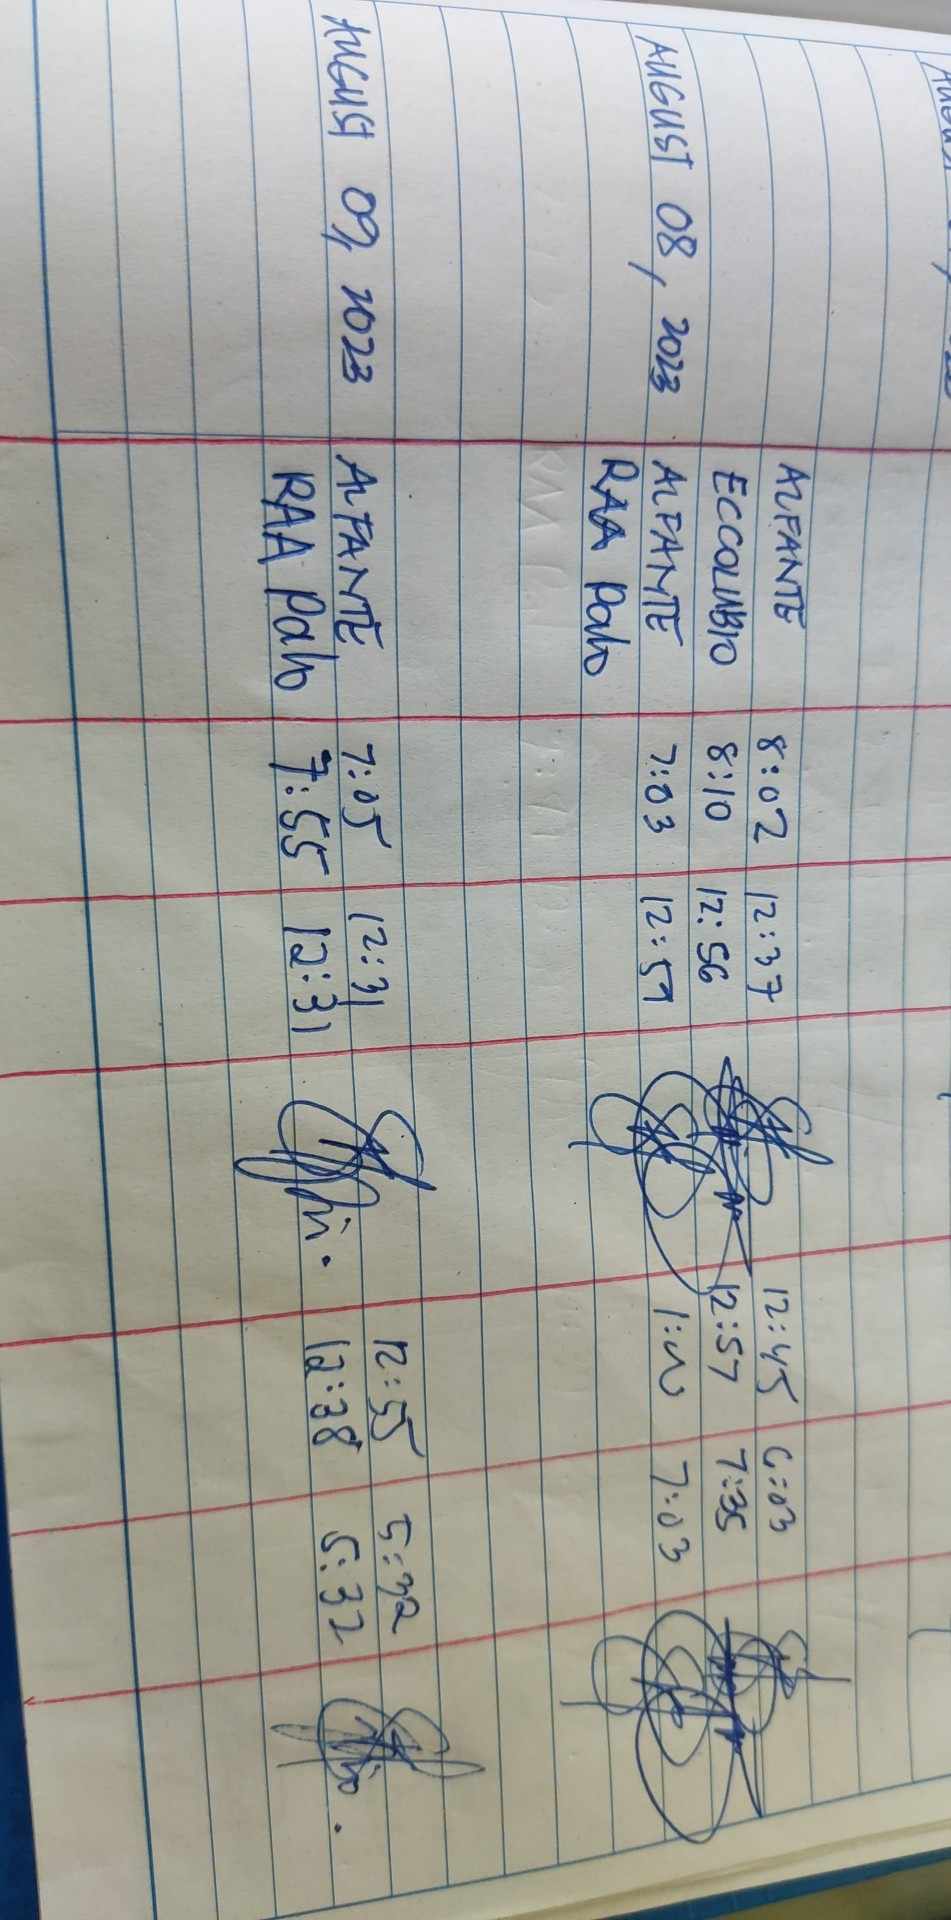 ALFANTE 8:02 12:37 12:45 6:03
ECCOLUBIO 8:10 12:56 12:57 7:35
AUGUST 08, 2023 ALFANTE 7:03 12:59 1:00 7:03
RAA Palo
AUGUST 09, 2023 ALFANTE 7:05 12:31 12:55 5:32
RAA Palo 7:55 12:31 12:38 5:32